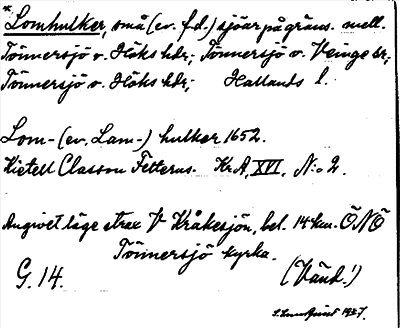 * Lomhulker, små (ev. f.d.) sjöar på gräns. mell.
Tönnersjö o. Höks hdr; Tönnersjö o. Veinge sr;
Tönnersjö o. Höks hdr; Hallands l.
Lom- (ev. Lam-) hulker 1652.
Kietell Classon Fetterus. KrA, XVI, N:o 2.
Angivet läge strax V Kråkesjön, bel. 14 km. ÖNÖ
Tönnersjö kyrka.
G. 14. (Vänd!)
1927.